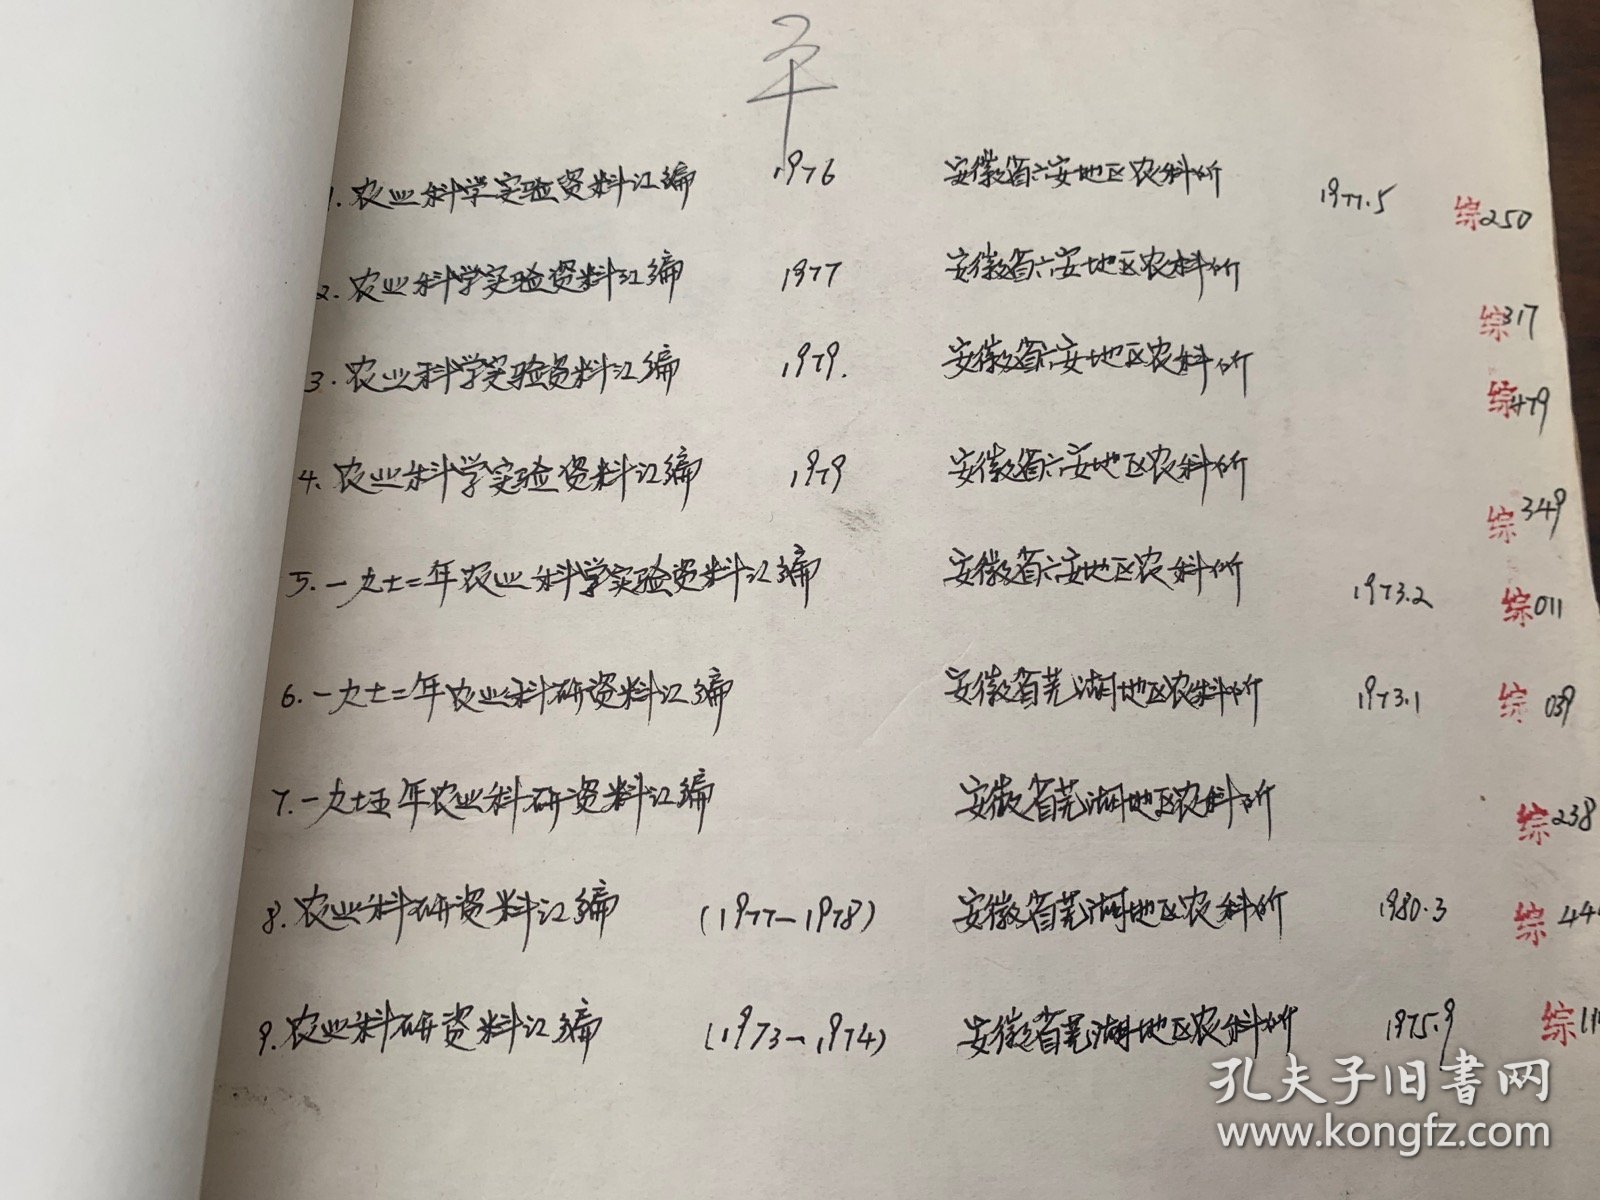 年
1. 农业科学实验资料汇编 1976 安徽省六安地区农科所 1977.5 综250
2. 农业科学实验资料汇编 1977 安徽省六安地区农科所 综317
3. 农业科学实验资料汇编 1979. 安徽省六安地区农科所 综479
4. 农业科学实验资料汇编 1979 安徽省六安地区农科所 综349
5. 一九七二年农业科学实验资料汇编 安徽省六安地区农科所 1973.2 综011
6. 一九七二年农业科研资料汇编 安徽省芜湖地区农科所 1973.1 综039
7. 一九七五年农业科研资料汇编 安徽省芜湖地区农科所 综238
8. 农业科研资料汇编 (1977-1978) 安徽省芜湖地区农科所 1980.3 综44
9. 农业科研资料汇编 (1973-1974) 安徽省芜湖地区农科所 1975.9 综11
孔夫子旧书网
www.kongfz.com